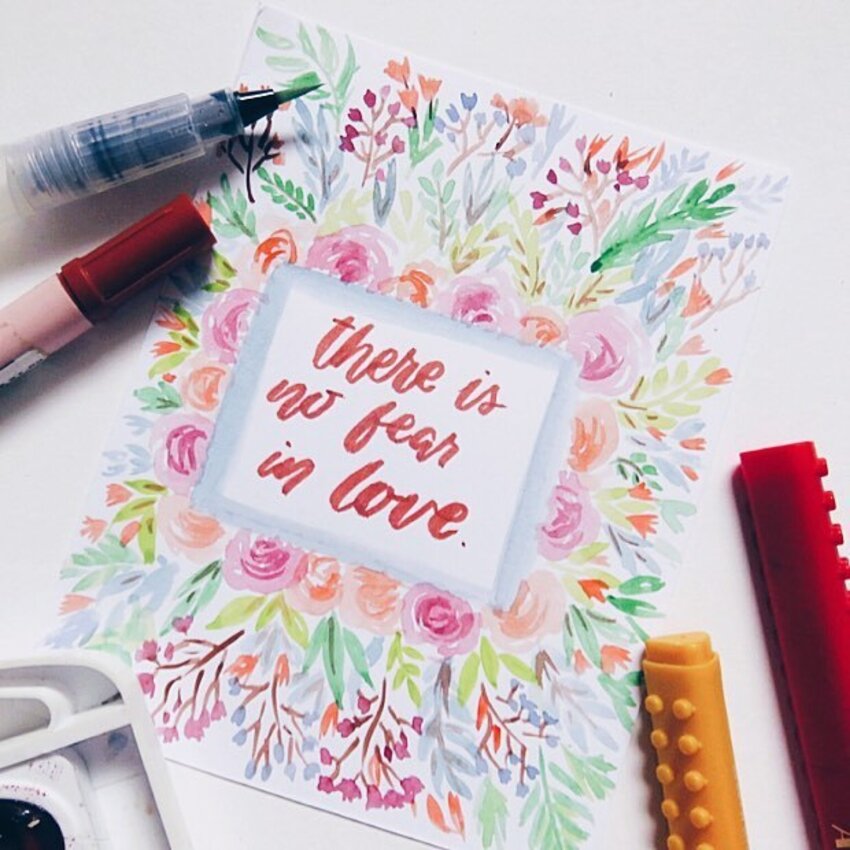 there is
no fear
in love.